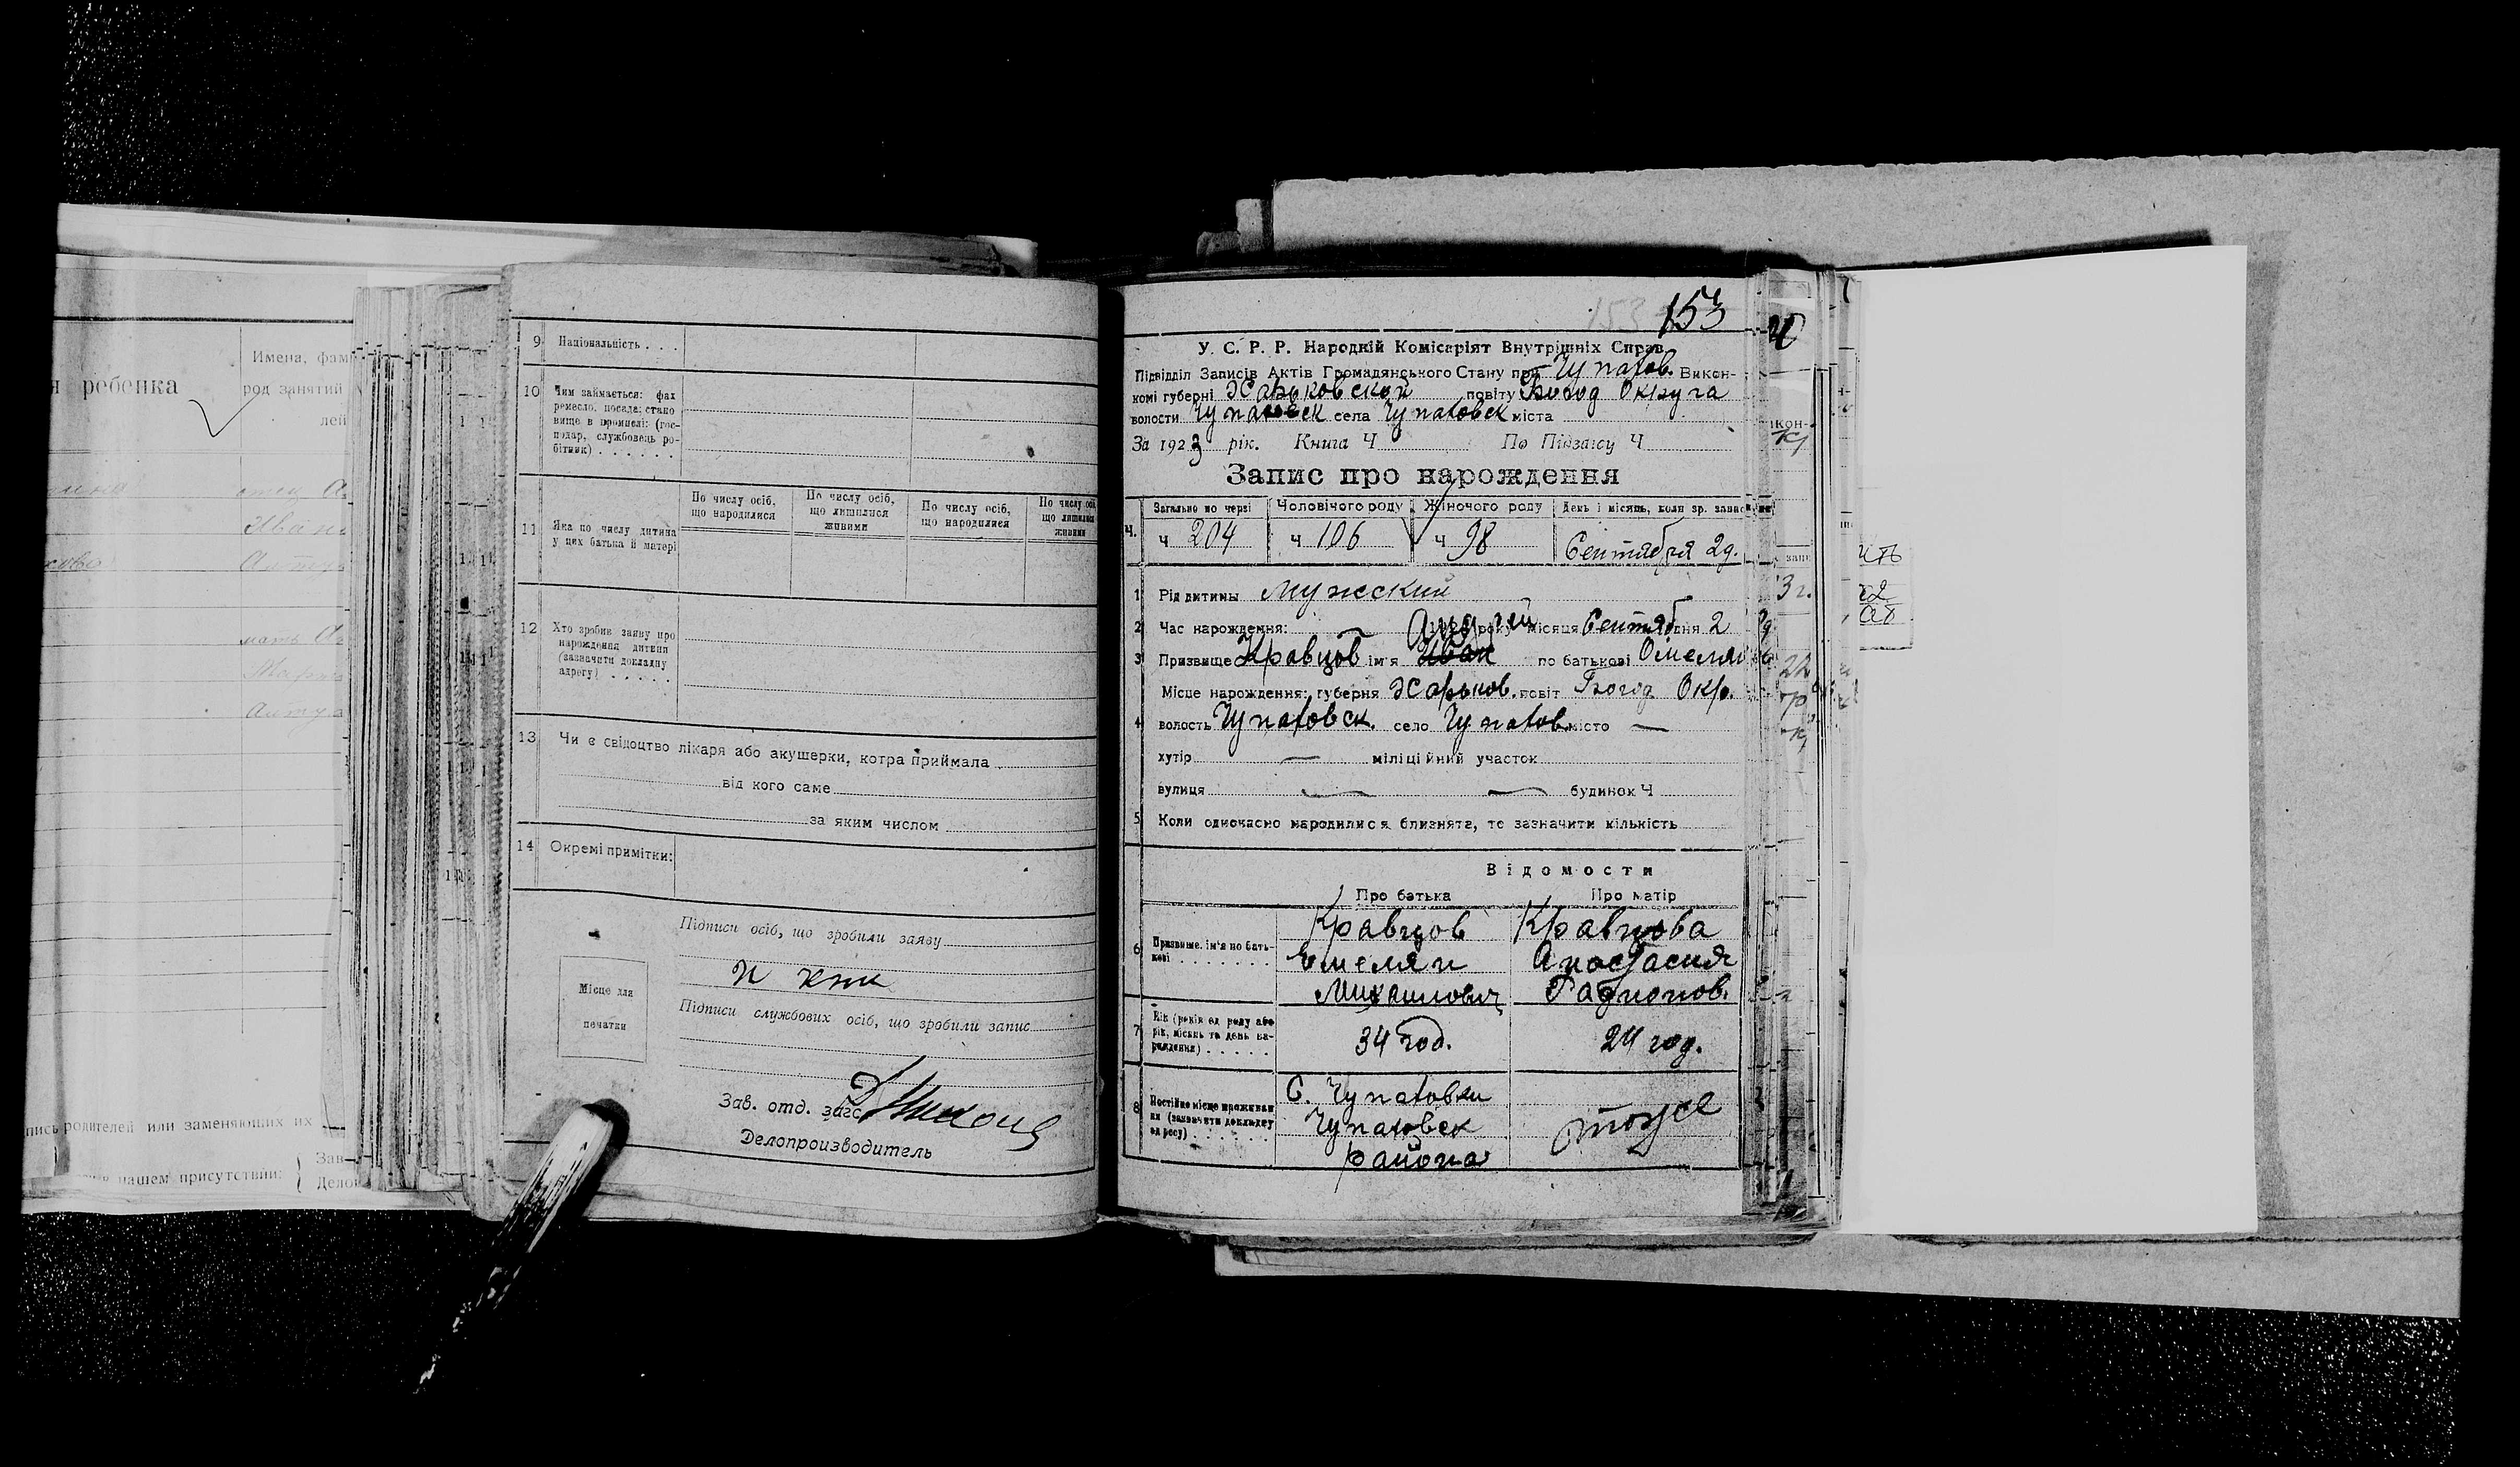 ребенка
Имена, фам
род занятий
лей
9 Національність . . .
10 Чим займається: фах
ремесло, посада; стано
вище в промислі: (гос-
подар, службовець ро-
бітник) . . . . . .
11 Яка по числу дитина
у цих батька й матері
По числу осіб,
що народилися
По числу осіб,
що лишилися
живими
По числу осіб,
що народилися
По числу осі
що лишилися
живими
12 Хто зробив заяву про
нарождення дитини
(зазначити докладну
адресу) . . . . .
13 Чи є свідоцтво лікаря або акушерки, котра приймала
від кого саме
за яким числом
14 Окремі примітки:
Підписи осіб, що зробили заяву
Місце для
печатки
Підписи службових осіб, що зробили запис
Зав. отд. загс
Делопроизводитель
пись родителей или заменяющих их
нашем присутствии:
Зав
Дело
153 153
У. С. Р. Р. Народній Комісаріят Внутрішніх Справ
Підвідділ Записів Актів Громадянського Стану при Чупахов. Викон-
комі губерні Харьковской повіту Богод Округа
волости Чупаховск села Чупаховск міста
За 1923 рік. Книга Ч По Підзагсу Ч
Запис про нарождення
Загально по черзі Чоловічого роду Жіночого роду День і місяць, коли зр. запис
ч. ч 204 ч 106 ч 98 Сентября 2д.
1 Рід дитини Мужский
2 Час нарождення: року місяця Сентяб дня 2
Андрей
3 Призвище Кравцов ім'я Иван по батькові Омелян
Місце нарождення: губерня Харьков. повіт Богод Окр.
4 волость Чупаховск. село Чупахов місто —
хутір — міліційний участок
вулиця — — будинок Ч
5 Коли одночасно народилися близнята, то зазначити кількість
Відомости
Про батька Про матір
6 Призвище, ім'я по бать-
кові . . . . . . . .
Кравцов Кравцова
Емелян Анастасия
Михаилович Радионов.
7 Вік (років од роду або
рік, місяць та день на-
рождення) . . . . .
34 год. 24 год.
8 Постійне місце проживан
ня (зазначити докладну
адресу) . . . . . . .
С. Чупаховки
Чупаховск
района
тоже